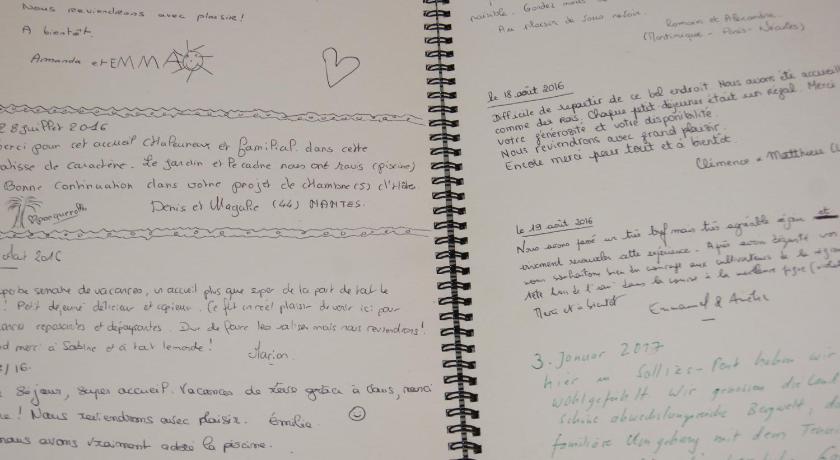 Nous reviendrons avec plaisir!
A bientôt.
Amanda et EMMA
28 Juillet 2016
merci pour cet accueil chaleureux et familial dans cette
batisse de caractère. Le jardin et le cadre nous ont ravis (piscine)
Bonne continuation dans votre projet de chambre(s) d'Hôte.
Denis et Magalie (44) NANTES.
août 2016
semaine de vacances, un accueil plus que super de la part de tout le
! Petit dejeuné délicieux et copieux. Ce fût un réel plaisir de venir ici pour
reposantes et dépaysantes. Dur de faire les valises mais nous reviendrons!
merci à Sabine et à tout le monde!
Marion.
/16.
séjour, super accueil. Vacances de rêve grâce à vous, merci
! Nous reviendrons avec plaisir. Émilie.
nous avons vraiment adoré la piscine.
paisible. Gardez
Au plaisir de vous revoir.
Romain et Alexandra
(Martinique - Paris -
le 18 août 2016
Difficile de repartir de ce bel endroit. Nous avons été accueilli
comme des Rois. Chaque petit déjeuner était un régal. Merci
votre générosité et votre disponibilité.
Nous reviendrons avec grand plaisir.
Encore merci pour tout et à bientôt.
Clémence & Matthieu
le 19 août 2016
Nous avons passé un très bref mais très agréable séjour et
renouveler cette expérience. Après avoir dégusté vos
vous souhaitons bien du courage aux cultivateurs de la région
dans la course à la meilleure figue
Merci et à bientôt
Emmanuel &
3. Januar 2017
hier in Solliès-Pont haben wir
wohlgefühlt. Wir genossen die
schöne abwechslungsreiche Bergwelt,
familiäre Umgebung mit dem